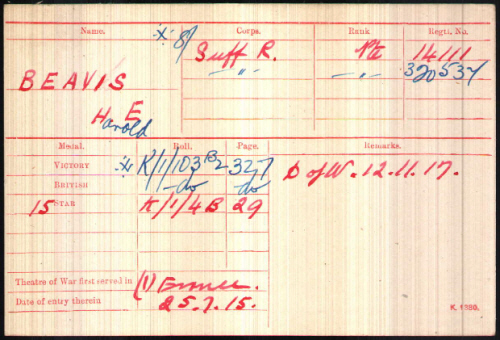 Name. Corps. Rank Regtl. No.
※ 8/ Suff R. Pte 14111
BEAVIS -"- -"- 320537
H E
arold
Medal. Roll. Page. Remarks.
VICTORY ※ K/1/103 B2 327 D of W. 12.11.17.
BRITISH -do do
15 STAR K/1/4B 29
Theatre of War first served in (1) France.
Date of entry therein 25.7.15.
K. 1380.